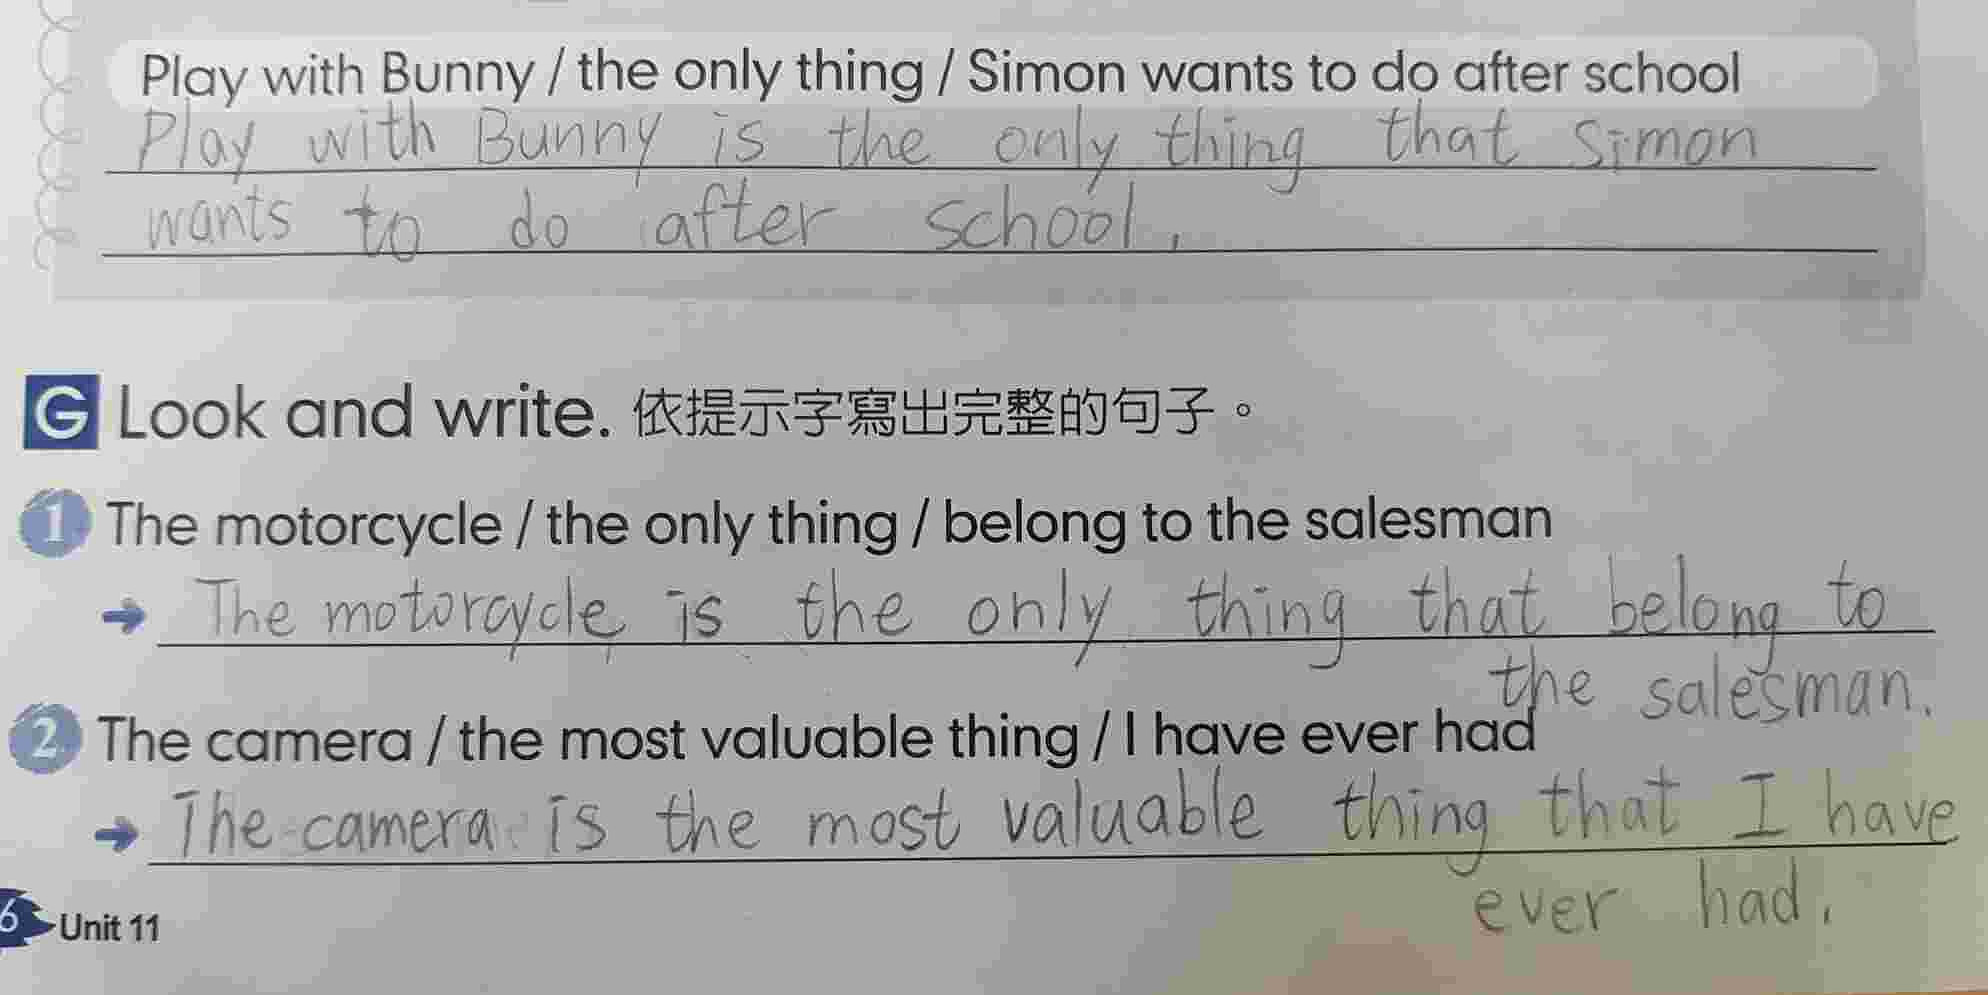 Play with Bunny / the only thing / Simon wants to do after school
Play with Bunny is the only thing that Simon
wants to do after school.
G Look and write. 依提示字寫出完整的句子。
1 The motorcycle / the only thing / belong to the salesman
→ The motorcycle is the only thing that belong to
the salesman.
2 The camera / the most valuable thing / I have ever had
→ The camera is the most valuable thing that I have
ever had.
6 Unit 11